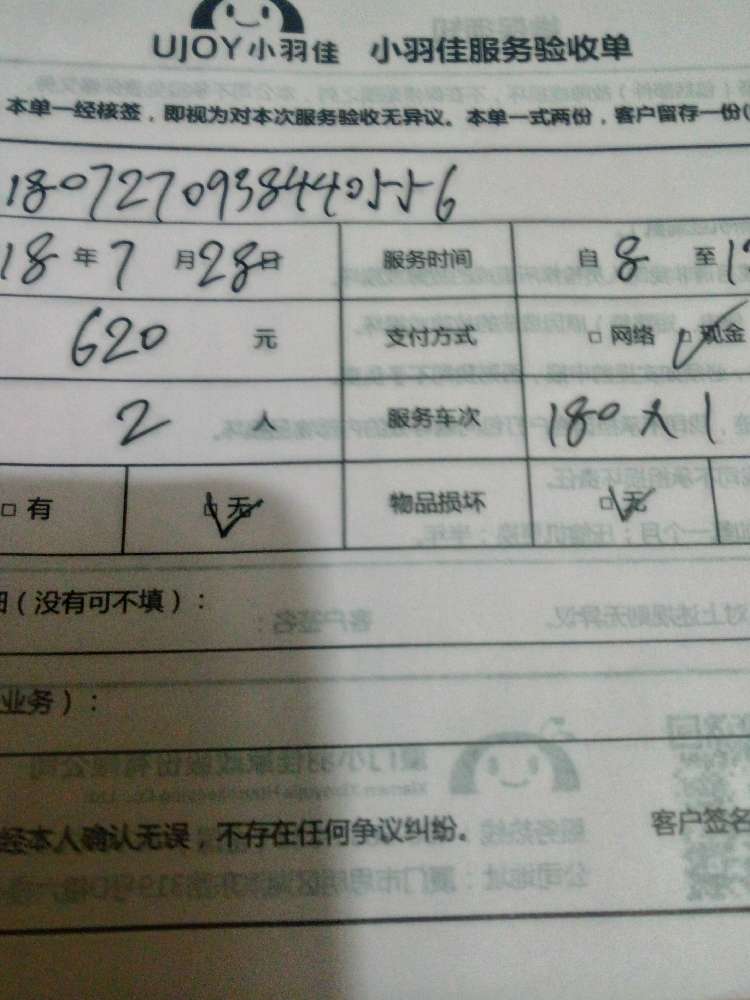 UJOY小羽佳 小羽佳服务验收单
本单一经核签，即视为对本次服务验收无异议。本单一式两份，客户留存一份(
1807270938440556
18年7月28日 服务时间 自8 至12
620 元 支付方式 □ 网络 □ 现金
2 人 服务车次 180×1
□ 有 □ 无 物品损坏 □ 无
(没有可不填)：
业务)：
经本人确认无误，不存在任何争议纠纷。 客户签名